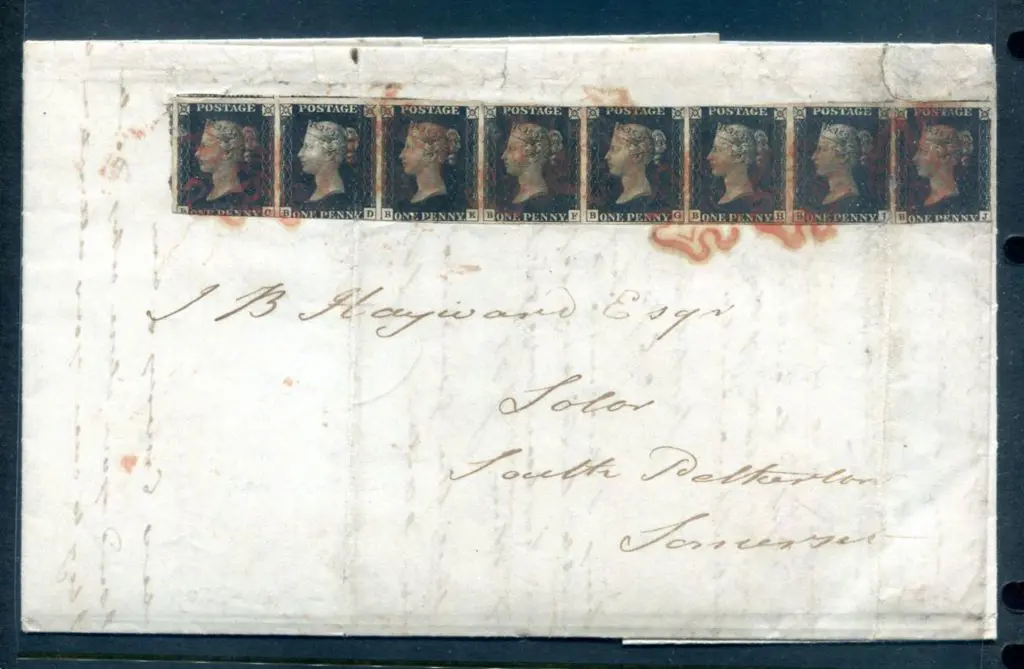 POSTAGE POSTAGE POSTAGE POSTAGE POSTAGE POSTAGE POSTAGE POSTAGE
ONE PENNY C B ONE PENNY D B ONE PENNY E B ONE PENNY F B ONE PENNY G B ONE PENNY H B ONE PENNY I B ONE PENNY J
J B Hayward Esqr
Solor
South Petherton
Somerset